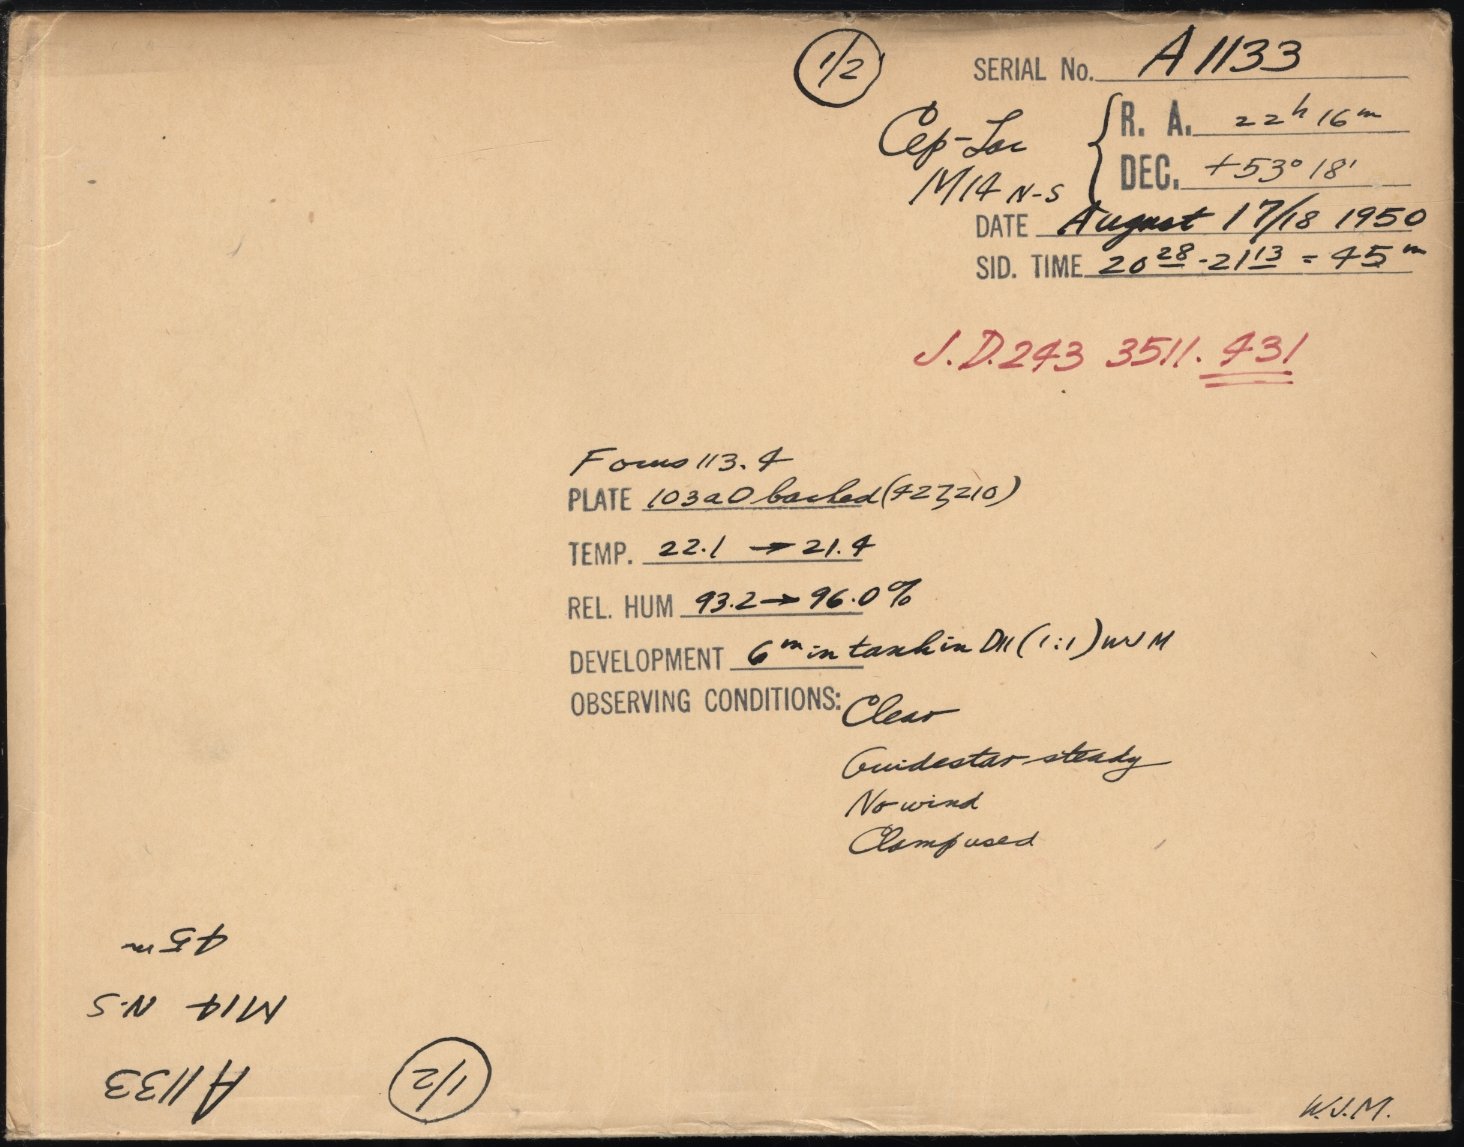 1/2
SERIAL No. A1133
Cep-Lac
M14 N-S
R. A. 22h 16m
DEC. +53° 18'
DATE August 17/18 1950
SID. TIME 20 28 - 21 13 = 45m
J.D. 243 3511.431
Focus 113.4
PLATE 103aO backed (427210)
TEMP. 22.1 → 21.4
REL. HUM 93.2 → 96.0%
DEVELOPMENT 6m in tank in D11 (1:1) WJM
OBSERVING CONDITIONS: Clear
Guidestar steady
No wind
Clamp used
45m
M14 N-S
A1133
1/2
W.J.M.